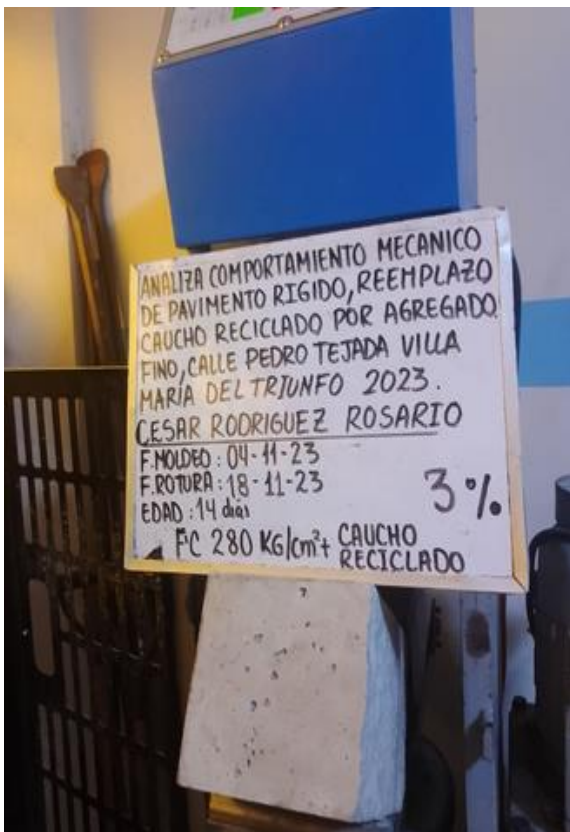 ANALIZA COMPORTAMIENTO MECANICO
DE PAVIMENTO RIGIDO, REEMPLAZO
CAUCHO RECICLADO POR AGREGADO
FINO, CALLE PEDRO TEJADA VILLA
MARIA DEL TRIUNFO 2023.
CESAR RODRIGUEZ ROSARIO
F.MOLDEO: 04-11-23
F.ROTURA: 18-11-23
EDAD: 14 días
3%
F'C 280 KG/cm²+ CAUCHO
RECICLADO